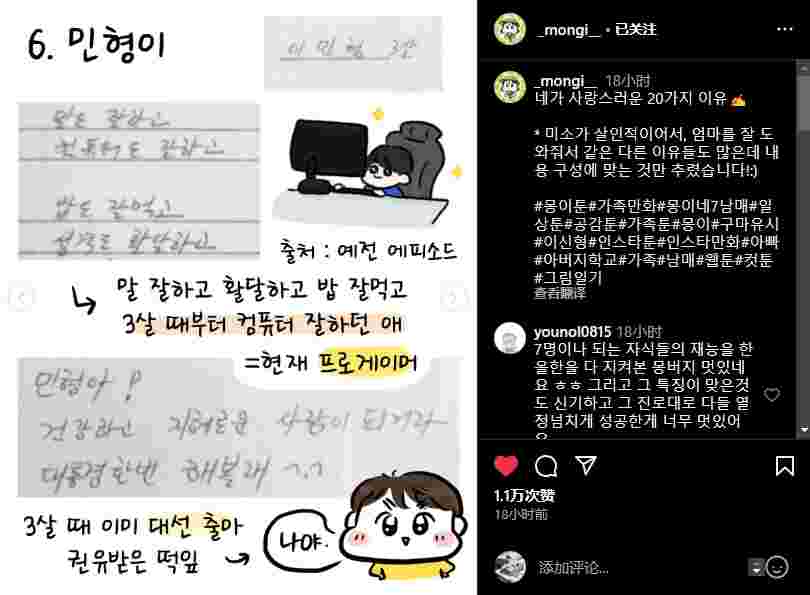 6. 민형이
이 민 형 3살
말도 잘하고
컴퓨터도 잘하고
밥도 잘먹고
성격도 활달하고
출처 : 예전 에피소드
말 잘하고 활달하고 밥 잘먹고
3살 때부터 컴퓨터 잘하던 애
=현재 프로게이머
민형아 !
건강하고 지혜로운 사람이 되거라
대통령 한번 해볼래 ?.?
3살 때 이미 대선 출마
권유받은 떡잎
나야.
_mongi__ • 已关注
_mongi__ 18小时
네가 사랑스러운 20가지 이유 ✍
* 미소가 살인적이어서, 엄마를 잘 도
와줘서 같은 다른 이유들도 많은데 내
용 구성에 맞는 것만 추렸습니다!:)
#몽이툰#가족만화#몽이네7남매#일
상툰#공감툰#가족툰#몽이#구마유시
#이신형#인스타툰#인스타만화#아빠
#아버지학교#가족#남매#웹툰#컷툰
#그림일기
查看翻译
younol0815 18小时
7명이나 되는 자식들의 재능을 한
올한올 다 지켜본 몽버지 멋있네
요 ㅎㅎ 그리고 그 특징이 맞은것
도 신기하고 그 진로대로 다들 열
정넘치게 성공한게 너무 멋있어
요
1.1万次赞
18小时前
添加评论...